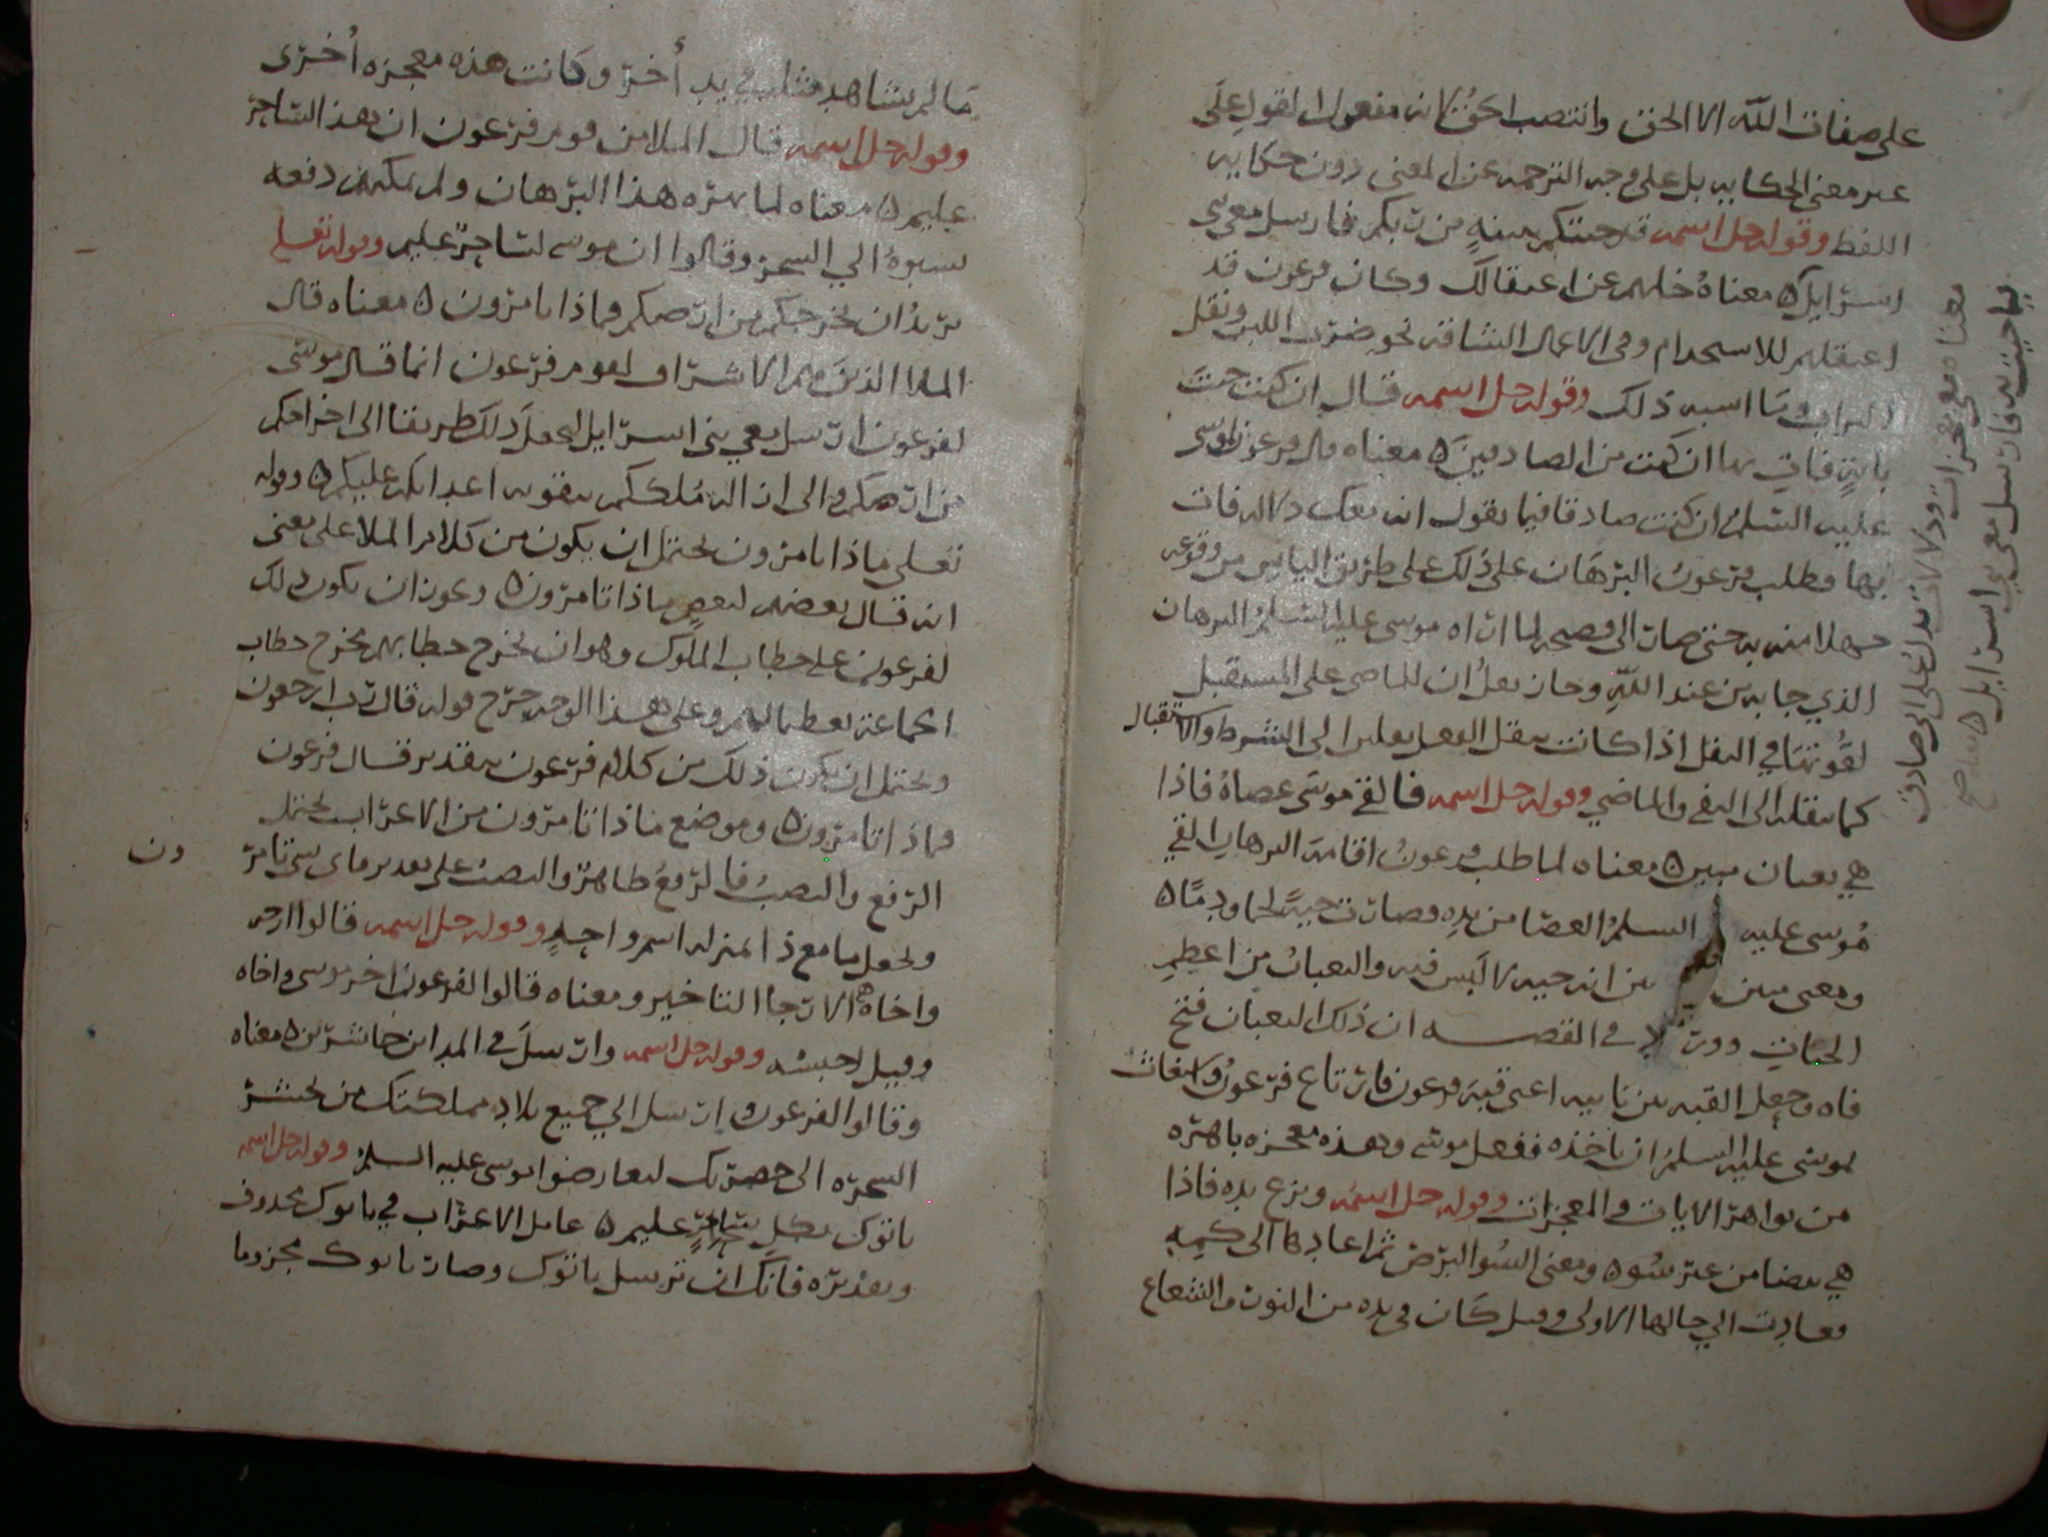 على صفات الله الا الحق وانتصب الحق لانه مفعول ان اقول على
غير معنى الحكايه بل على وجه الترجمه عن المعنى دون حكايه
اللفظ وقوله جل اسمه قد جئتكم ببينةٍ من ربكم فارسل معي بني
اسرايل ٥ معناه خلهم عن اعتقالك وكان فرعون قد
اعتقلهم للاستخدام وفي الاعمال الشاقه نحو ضرب اللبن ونقل
التراب وما اشبه ذلك وقوله جل اسمه قال ان كنت جئت
بايةٍ فات بها ان كنت من الصادقين ٥ معناه قال فرعون لموسى
عليه السلم ان كنت صادقا فيما تقول انه معك دلاله فات
بها وطلب فرعون البرهان على ذلك على طريق اليايس من وقوعه
جهلا منه به حتى صارت الى فضيحه لما اراه موسى عليه السلم البرهان
الذي جا به من عند الله وجاز نقل ان للماضي على المستقبل
لقوتها في النقل اذا كانت تنقل الفعل نقلين الى الشرط والاستقبال
كما تنقله الى النفي والماضي وقوله جل اسمه فالقى موسى عصاهُ فاذا
هي ثعبان مبين ٥ معناه لما طلب فرعون اقامة البرهان القى
موسى عليه السلم العصا من يده فصارت حيةً لحما ودمًا ٥
ومعنى مبين بين انه حيه لا لبس فيه والثعبان من اعظم
الحيات وورد في القصه ان ذلك الثعبان فتح
فاه وجعل القبه بين نابيه اعني قبة فرعون فارتاع فرعون واستغاث
لموسى عليه السلم ان ياخذه ففعل موسى وهذه معجزه باهره
من بواهر الايات والمعجزات وقوله جل اسمه ونزع يده فاذا
هي بيضا من غير سوء ٥ ومعنى السوا البرص ثم اعادها الى كمه
فعادت الى حالها الاولى وقيل كان في يده من النور والشعاع
معناه معي معجزات ودلالات تدل على اني صادق
فيما جيت به فارسل معي بني اسرايل ٥ معناه صح
ما لم يشاهد مثله في يد أُخر وكانت هذه معجزه أُخرى
وقوله جل اسمه قال الملا من قوم فرعون ان هذا لساحر
عليم ٥ معناه لما بهره هذا البرهان ولم يمكنهم دفعه
نسبوهُ الي السحر وقالوا ان موسى لساحر عليم وقوله تعلى
يريدُ ان يخرجكم من ارضكم فماذا تامرون ٥ معناه قال
الملا الذين هم الاشراف لقوم فرعون انما قال موسى
لفرعون ارسل معي بنى اسرايل ليجعل ذلك طريقا الى اخراجكم
من ارضكم والى ازالة مُلككم بتقويه اعدايكم عليكم ٥ وقوله
تعلى ماذا تامرون يحتمل ان يكون من كلام الملا على معنى
انه قال بعضهم لبعض ماذا تامرون ٥ ويجوز ان يكون ذلك
لفرعون على خطاب الملوك وهو ان يخرج خطابهم مخرج خطاب
الجماعة تعظيما لهم وعلى هذا الوجه خرج قوله قال رب ارجعون
ويحتمل ان يكون ذلك من كلام فرعون بتقدير قال فرعون
فماذا تامرون ٥ وموضع ماذا تامرون من الاعراب يحتمل
الرفع والنصب فالرفع ظاهر والنصب على تقدير فاى شي تامر
ون
ويجعل ما مع ذا بمنزلة اسم واحدٍ وقوله جل اسمه قالوا ارجه
واخاه ٥ الارجا التاخير ومعناه قالوا لفرعون اخر موسى واخاه
وقيل احبسه وقوله جل اسمه وارسل في المداين حاشرين ٥ معناه
وقالوا لفرعون ارسل الي جميع بلاد مملكتك من يحشر
السحره الى حضرتك ليعارضوا موسى عليه السلم وقوله جل اسمه
ياتوك بكل ساحرٍ عليم ٥ عامل الاعراب في ياتوك محذوف
وتقديره فانك ان ترسل ياتوك وصار ياتوك مجزوما